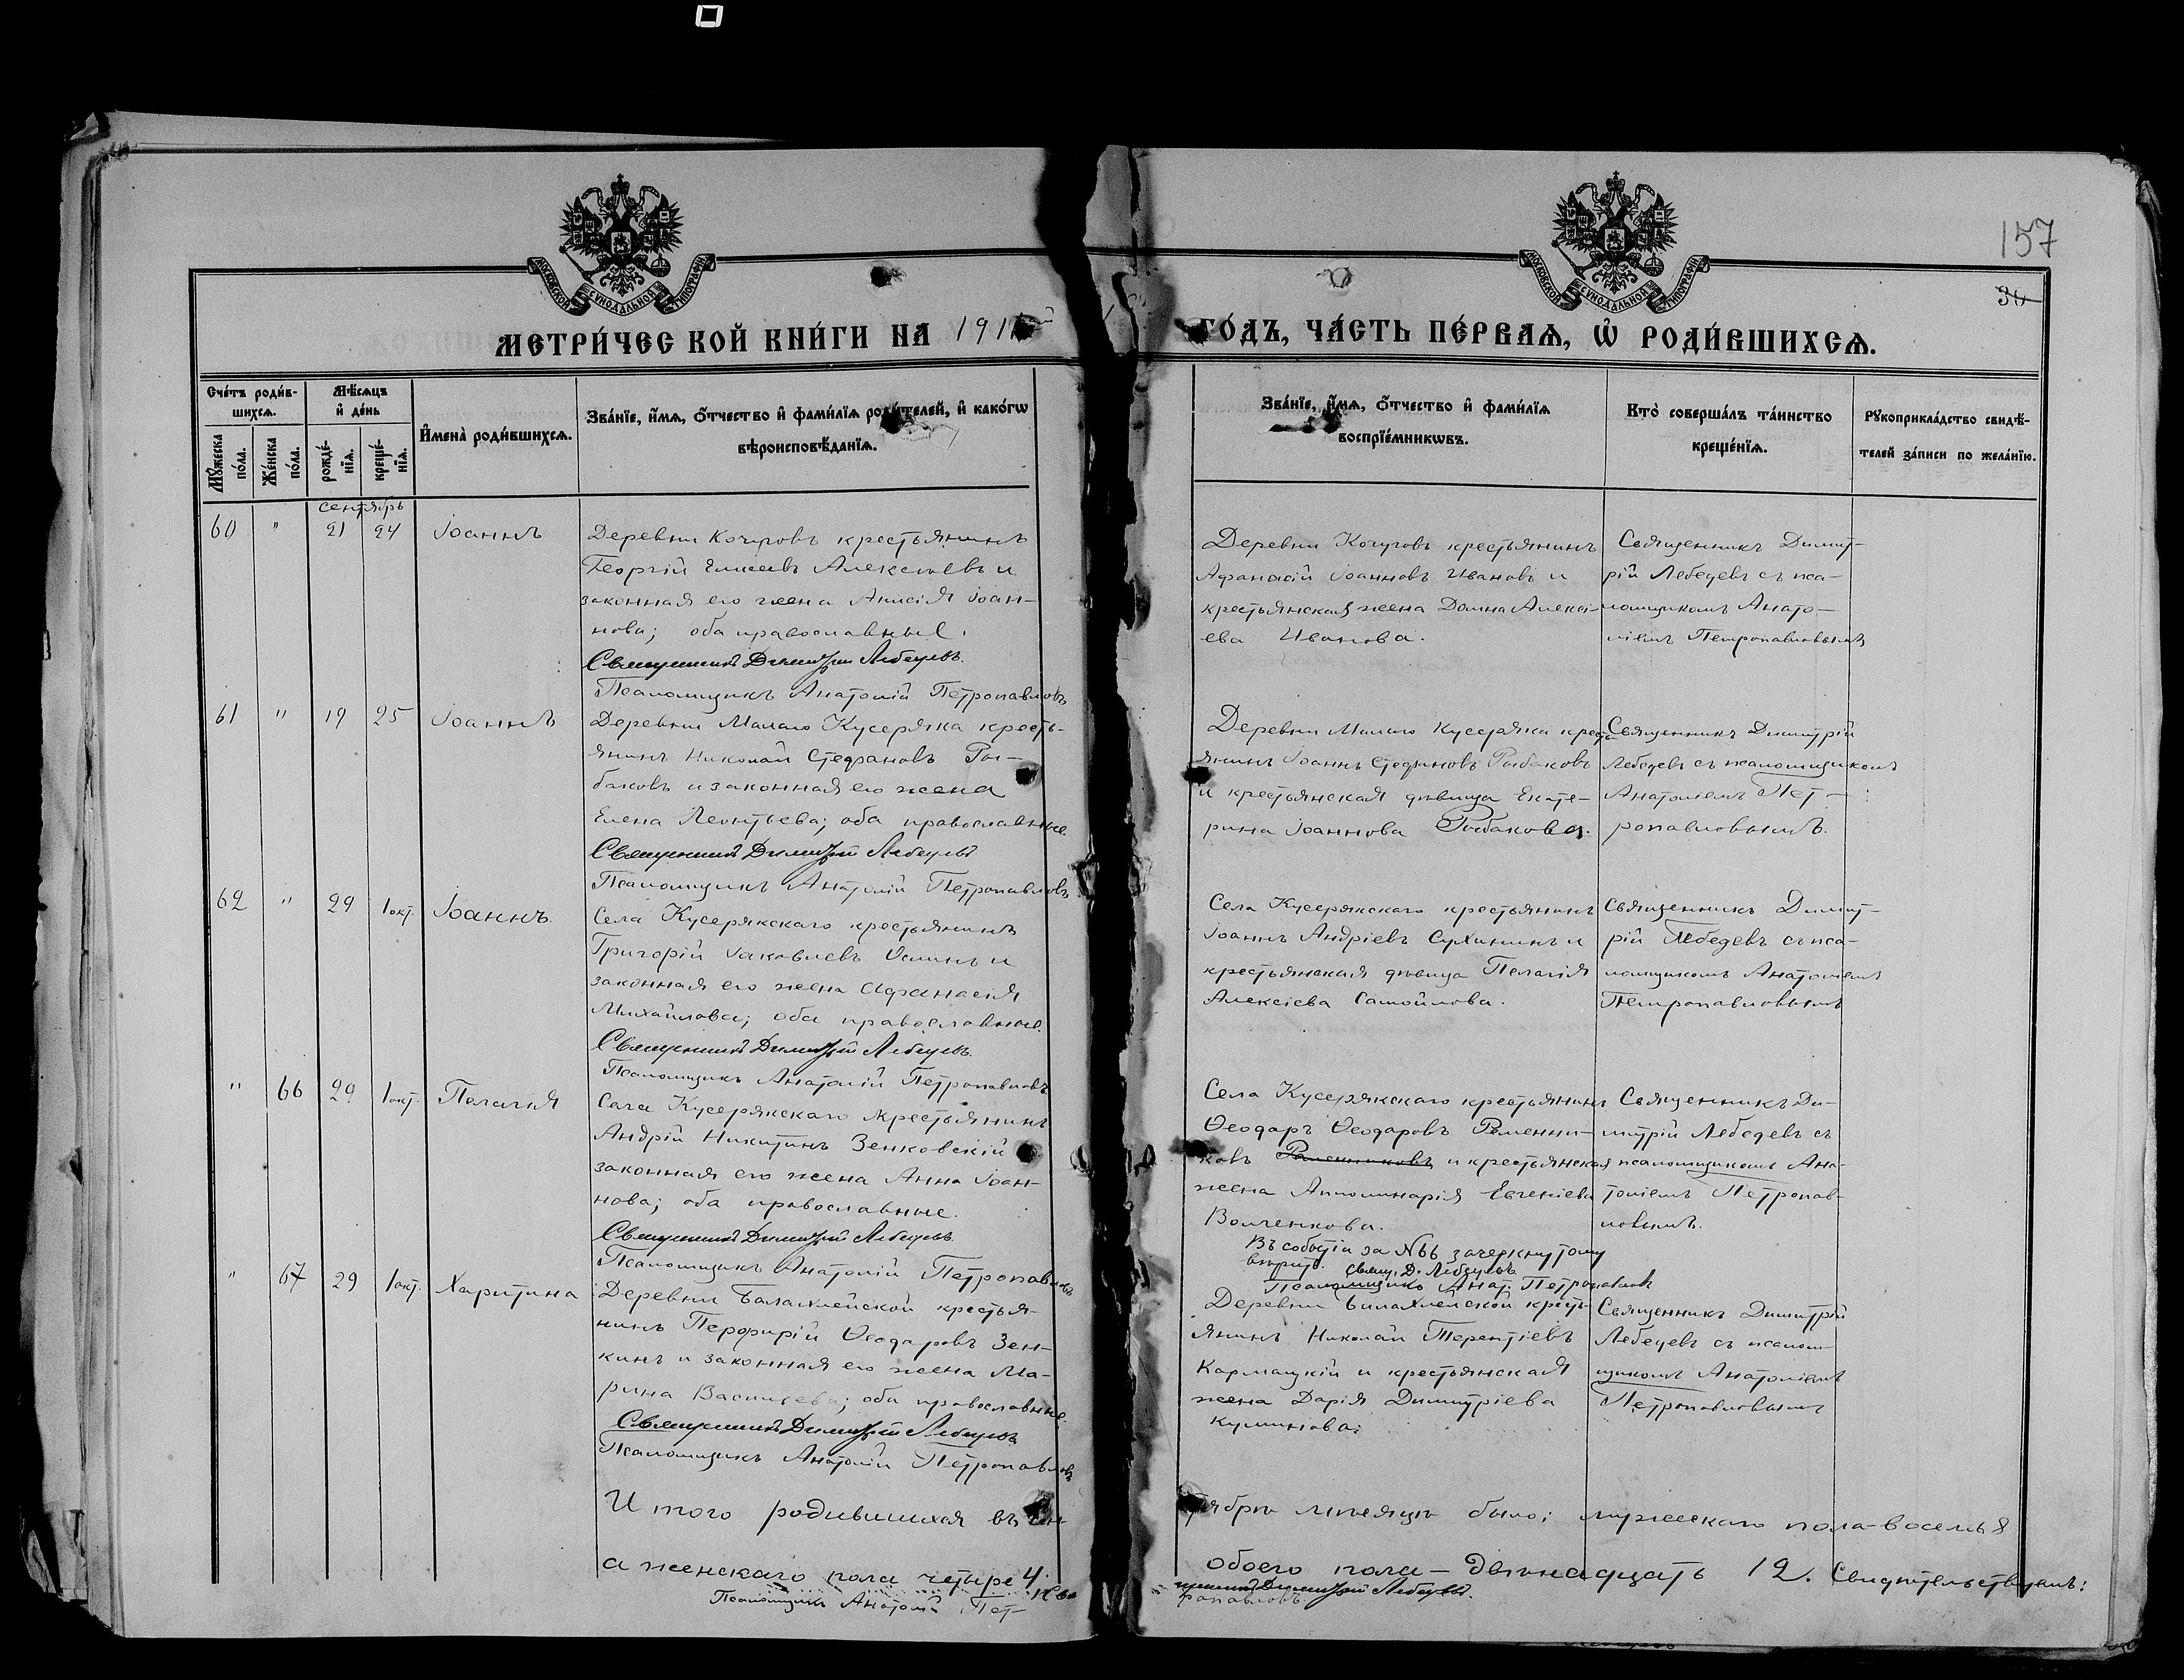 157
30
МОСКОВСКОЙ СѴНОДАЛЬНОЙ ТИПОГРАФІИ
МОСКОВСКОЙ СѴНОДАЛЬНОЙ ТИПОГРАФІИ
МЕТРИ́ЧЕСКОЙ КНИ́ГИ НА 191
ГО́ДЪ, ЧА́СТЬ ПЕ́РВАѦ, Ѡ҆ РОДИ́ВШИХСѦ.
Сче́тъ роди́в-
шихсѧ.
Мꙋ́жеска по́ла.
Же́нска по́ла.
Мѣ́сѧцъ
и҆ де́нь
рожде́-нїѧ.
креще́-нїѧ.
И҆мена̀ роди́вшихсѧ.
Зва́нїе, и҆́мѧ, ѻ҆́тчество и҆ фами́лїѧ роди́телей, и҆ како́гѡ
вѣроисповѣ́данїѧ.
Зва́нїе, и҆́мѧ, ѻ҆́тчество и҆ фами́лїѧ
воспрїе́мникѡвъ.
Кто̀ соверша́лъ та́инство
креще́нїѧ.
Рꙋкоприкла́дство свидѣ́-
телей за́писи по жела́нїю.
сентябрь
60 " 21 24 Іоаннъ
Деревни Кочуровъ крестьянинъ
Георгій Елисеевъ Алексѣевъ и
законная его жена Анисія Іоан-
нова; оба православные.
Священникъ Димитрій Лебедевъ.
Псаломщикъ Анатолій Петропавловъ
Деревни Кочуровъ крестьянинъ
Афанасій Іоанновъ Ивановъ и
крестьянская жена Домна Алексі-
ева Иванова.
Священникъ Димит-
рій Лебедевъ съ пса-
ломщикомъ Анато-
ліемъ Петропавловымъ
61 " 19 25 Іоаннъ
Деревни Малаго Кусеряка кресть-
янинъ Николай Стефановъ Ры-
баковъ и законная его жена
Елена Леонтьева; оба православные
Священникъ Димитрій Лебедевъ
Псаломщикъ Анатолій Петропавловъ
Деревни Малаго Кусеряка кресть-
янинъ Іоаннъ Стефановъ Рыбаковъ
и крестьянская дѣвица Екате-
рина Іоаннова Рыбакова.
Священникъ Димитрій
Лебедевъ съ псаломщикомъ
Анатоліемъ Пет-
ропавловымъ.
62 " 29 1 окт. Іоаннъ.
Села Кусерякскаго крестьянинъ
Григорій Іаковлевъ и
законная его жена Афанасія
Михайлова; оба православные.
Священникъ Димитрій Лебедевъ.
Псаломщикъ Анатолій Петропавловъ
Села Кусерякскаго крестьянинъ
Іоаннъ Андріевъ Сухининъ и
крестьянская дѣвица Пелагія
Алексіева Самойлова.
Священникъ Димит-
рій Лебедевъ съ пса-
ломщикомъ Анатоліемъ
Петропавловымъ
" 66 29 1 окт. Пелагія
Села Кусерякскаго крестьянинъ
Андрій Никитинъ Зенковскій
законная его жена Анна Іоан-
нова; оба православные.
Священникъ Димитрій Лебедевъ.
Псаломщикъ Анатолій Петропавловъ
Села Кусерякскаго крестьянинъ
Ѳеодаръ Ѳеодаровъ Раменни-
ковъ Раменниковъ и крестьянская
жена Апполинарія Евгеніева
Волченкова.
Въ событіи за №66 зачеркнутому
вѣрить. Свящ. Д. Лебедевъ
Псаломщикъ Анат. Петропавловъ
Священникъ Ди-
митрій Лебедевъ съ
псаломщикомъ Ана-
толіемъ Петропав-
ловымъ.
" 67 29 1 окт. Харитина
Деревни Балахлейской крестья-
нинъ Перфирій Ѳеодаровъ Зен-
кинъ и законная его жена Ма-
рина Васильева; оба православные.
Священникъ Димитрій Лебедевъ
Псаломщикъ Анатолій Петропавловъ
Деревни Балахлейской кресть-
янинъ Николай Терентіевъ
Кармацкій и крестьянская
жена Дарія Димитріева
Куминова.
Священникъ Димитрій
Лебедевъ съ псалом-
щикомъ Анатоліемъ
Петропавловымъ
Итого родившихся въ сен-
тябрѣ мѣсяцѣ было: мужескаго пола-восемь 8
а женскаго пола четыре 4.
обоего пола - двѣнадцать 12. Свидѣтельствуемъ:
Священникъ Димитрій Лебедевъ.
Псаломщикъ Анатолій Пет-
ропавловъ.